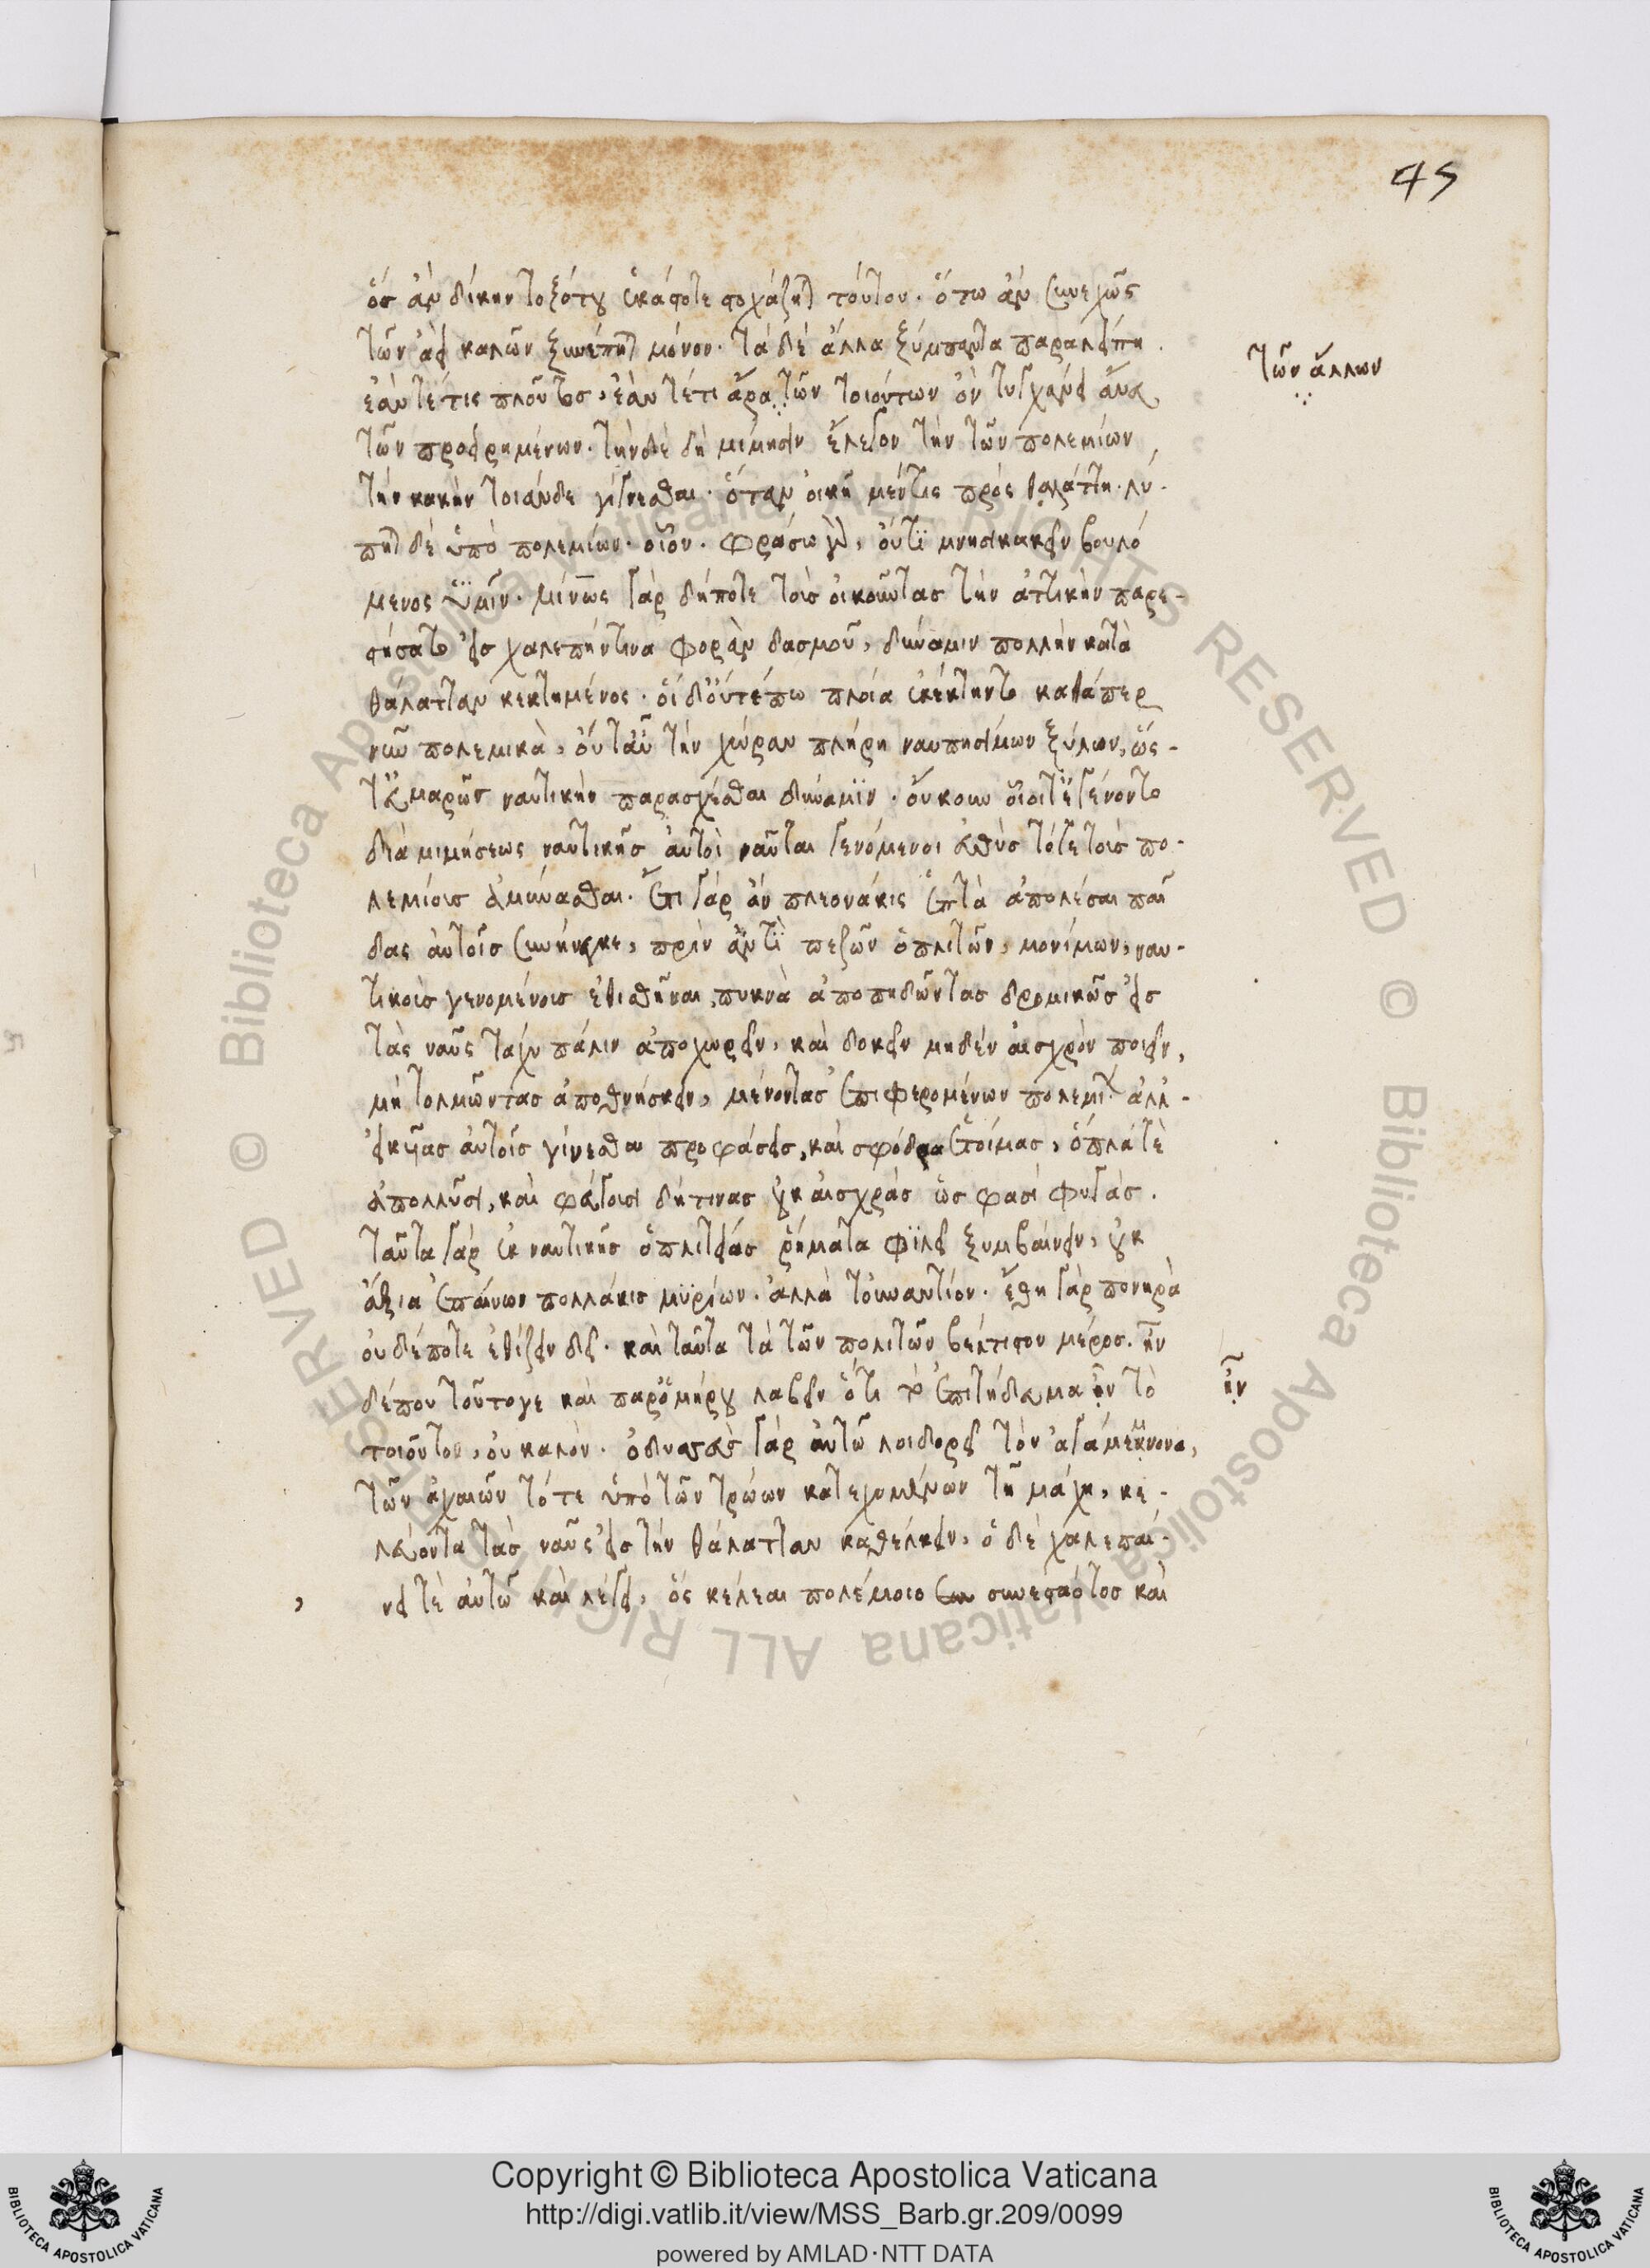 45
ὃς ἂν δίκην τοξότου ἑκάστοτε στοχάζηται τούτου. ὅτω ἂν συνεχῶς
τῶν ἀεὶ καλῶν ξυνέπηται μόνον. τὰ δὲ ἄλλα ξύμπαντα παραλείπη.
ἐάν τέ τις πλοῦτος, ἐάν τέ τι ἄρα τῶν τοιούτων ὂν τυγχάνει ἄνευ
τῶν ἄλλων
τῶν προειρημένων. τὴν δὲ δὴ μίμησιν ἔλεγον τὴν τῶν πολεμίων
τὴν κακὴν τοιάνδε γίγνεσθαι. ὅταν οἰκῆ μέν τις πρὸς θαλάττη. λυ-
πῆται δὲ ὑπὸ πολεμίων. οἷον. φράσω γὰρ, οὔτι μνησικακεῖν βουλό
μενος ὑμῖν. μίνως γὰρ δήποτε τοὺς οἰκοῦντας τὴν ἀττικὴν παρε-
στήσατο εἰς χαλεπήν τινα φορὰν δασμοῦ, δύναμιν πολλὴν κατὰ
θάλατταν κεκτημένος. οἱ δ' οὔτέ πω πλοῖα ἐκέκτηντο καθάπερ
νῦν πολεμικὰ, οὔτ' αὖ τὴν χώραν πλήρη ναυπησίμων ξύλων, ὥς-
τ' εὐμαρῶς ναυτικὴν παρασχέσθαι δύναμιν. οὔκουν οἷοί τ' ἐγένοντο
διὰ μιμήσεως ναυτικῆς αὐτοὶ ναῦται γενόμενοι εὐθὺς τότε τοὺς πο-
λεμίους ἀμύνασθαι. ἔτι γὰρ ἂν πλεονάκις ἑπτὰ ἀπολέσαι παῖ
δας αὐτοῖς συνήνεγκε, πρὶν ἀντὶ πεζῶν ὁπλιτῶν, μονίμων, ναυ-
τικοὺς γενομένους ἐθισθῆναι, πυκνὰ ἀποπηδῶντας δρομικῶς εἰς
τὰς ναῦς ταχὺ πάλιν ἀποχωρεῖν, καὶ δοκεῖν μηδὲν αἰσχρὸν ποιεῖν,
μὴ τολμῶντας ἀποθνήσκειν, μένοντας ἐπιφερομένων πολεμίων ἀλλ-
εἰκυίας αὐτοῖς γίνεσθαι προφάσεις, καὶ σφόδρα ἑτοίμας, ὅπλά τε
ἀπολλῦσι, καὶ φεύγουσι δή τινας οὐκ αἰσχρὰς ὥς φασι φυγάς.
ταῦτα γὰρ ἐκ ναυτικῆς ὁπλιτείας ῥήματα φιλεῖ ξυμβαίνειν, οὐκ
ἄξια ἐπαίνων πολλάκις μυρίων. ἀλλὰ τοὐναντίον. ἔθη γὰρ πονηρὰ
οὐδέποτε ἐθίζειν δεῖ. καὶ ταῦτα τὰ τῶν πολιτῶν βέλτιστον μέρος. ἦν
δέ που τοῦτο γε καὶ παρ' ὁμήρου λαβεῖν ὅτι τὸ ἐπιτήδευμα ἦν τὸ
ἦν
τοιοῦτον, οὐ καλὸν. ὀδυσσεὺς γὰρ αὐτῷ λοιδορεῖ τὸν ἀγαμέμνονα,
τῶν ἀχαιῶν τότε ὑπὸ τῶν τρώων κατεχομένων τῆ μάχη, κε-
λεύοντα τὰς ναῦς εἰς τὴν θάλατταν καθέλκειν, ὁ δὲ χαλεπαί-
νει τὲ αὐτῷ καὶ λέγει, ὃς κέλεαι πολέμοιο συνεσταότος καὶ
Copyright © Biblioteca Apostolica Vaticana
http://digi.vatlib.it/view/MSS_Barb.gr.209/0099
powered by AMLAD·NTT DATA